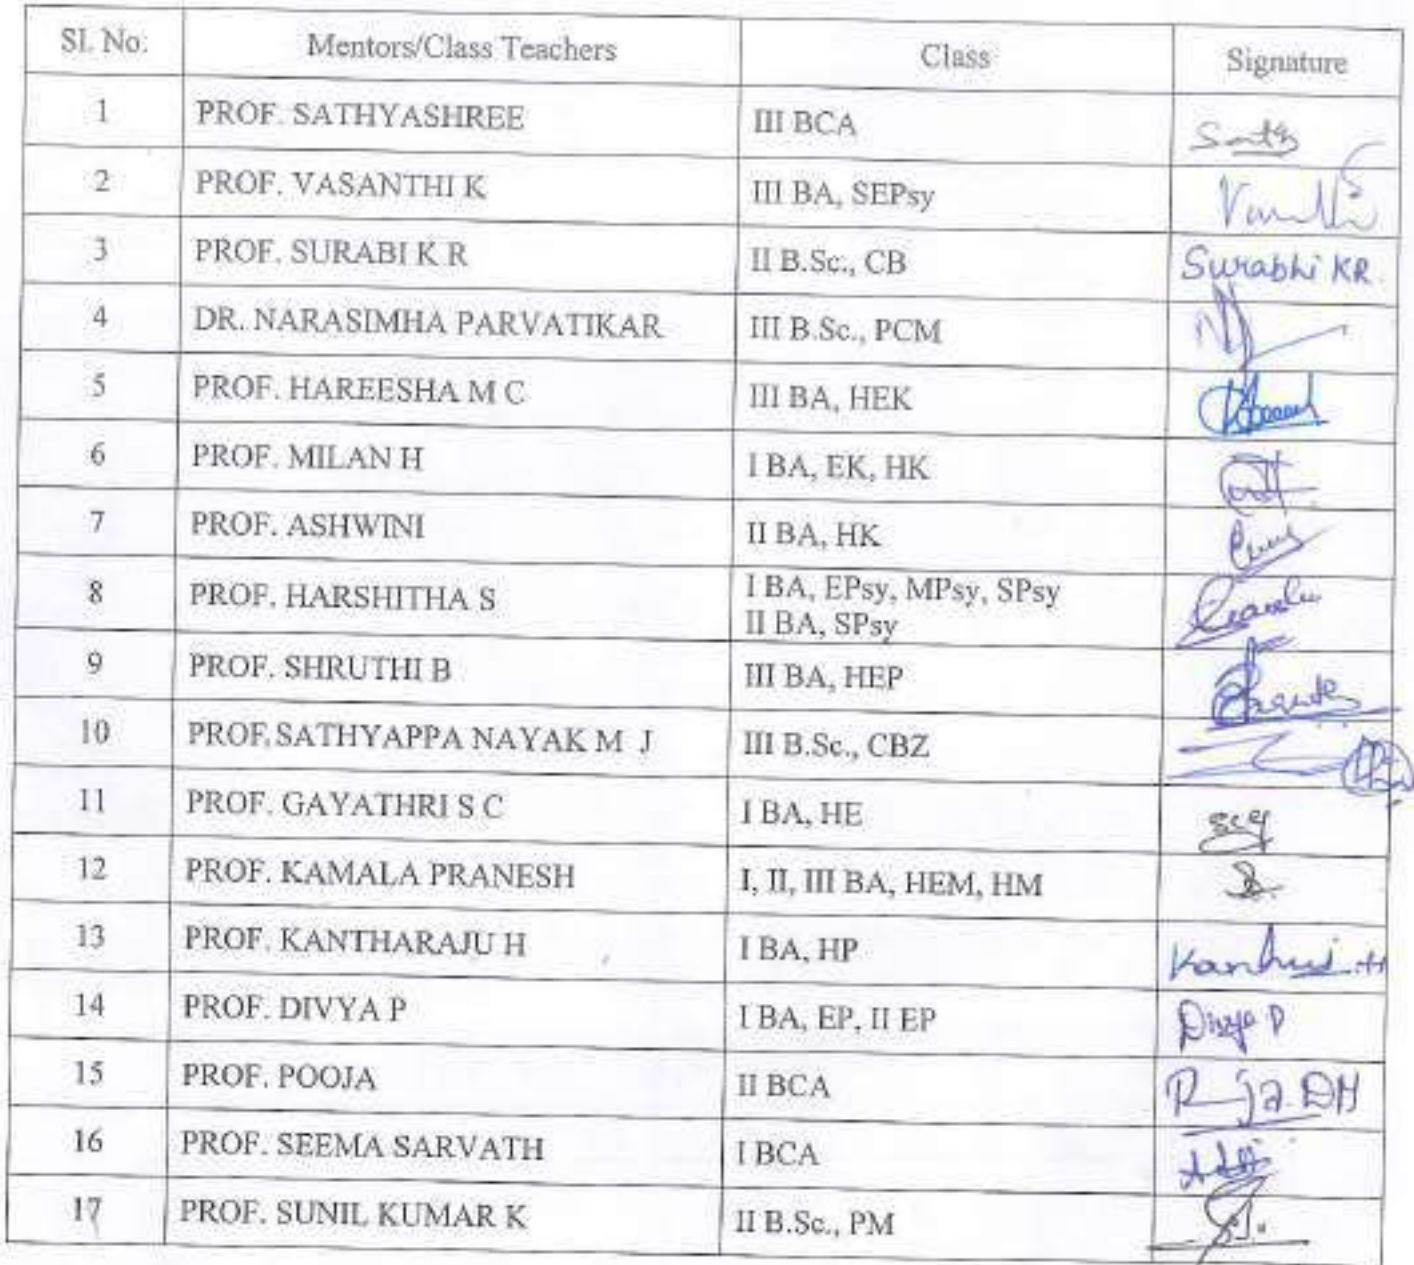 Sl. No. Mentors/Class Teachers Class Signature
1 PROF. SATHYASHREE III BCA
2 PROF. VASANTHI K III BA, SEPsy
3 PROF. SURABI K R II B.Sc., CB Surabhi KR.
4 DR. NARASIMHA PARVATIKAR III B.Sc., PCM
5 PROF. HAREESHA M C III BA, HEK
6 PROF. MILAN H I BA, EK, HK
7 PROF. ASHWINI II BA, HK
8 PROF. HARSHITHA S I BA, EPsy, MPsy, SPsy
II BA, SPsy
9 PROF. SHRUTHI B III BA, HEP
10 PROF. SATHYAPPA NAYAK M J III B.Sc., CBZ
11 PROF. GAYATHRI S C I BA, HE
12 PROF. KAMALA PRANESH I, II, III BA, HEM, HM
13 PROF. KANTHARAJU H I BA, HP
14 PROF. DIVYA P I BA, EP, II EP Divya P
15 PROF. POOJA II BCA
16 PROF. SEEMA SARVATH I BCA
17 PROF. SUNIL KUMAR K II B.Sc., PM